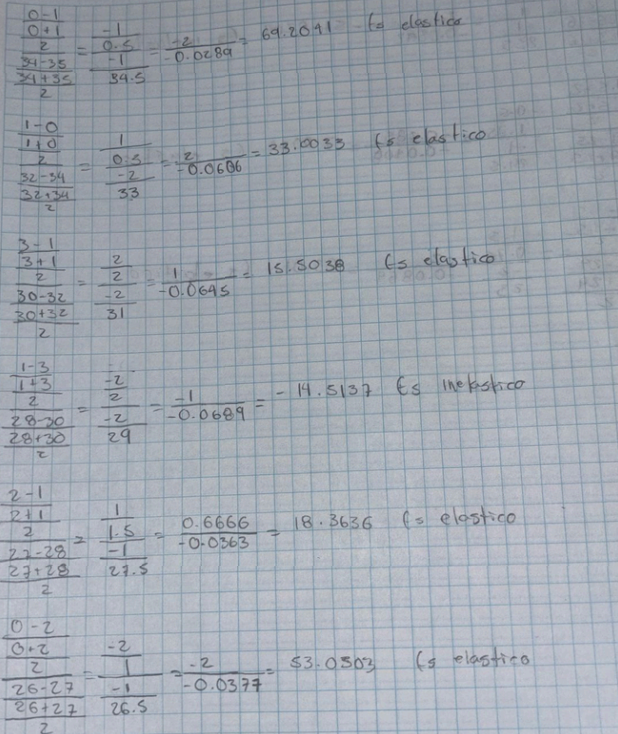 ((0-1)/((0+1)/2))/((34-35)/((34+35)/2)) = (-1/0.5)/(-1/34.5) = -2/-0.0289 = 69.2041 Es elastico
((1-0)/((1+0)/2))/((32-34)/((32+34)/2)) = (1/0.5)/(-2/33) = 2/-0.0606 = 33.0033 Es elastico
((3-1)/((3+1)/2))/((30-32)/((30+32)/2)) = (2/2)/(-2/31) = 1/-0.0645 = 15.5038 Es elastico
((1-3)/((1+3)/2))/((28-30)/((28+30)/2)) = (-2/2)/(-2/29) = -1/-0.0689 = -14.5137 Es inelastico
((2-1)/((2+1)/2))/((27-28)/((27+28)/2)) = (1/1.5)/(-1/27.5) = 0.6666/-0.0363 = 18.3636 Es elastico
((0-2)/((0+2)/2))/((26-27)/((26+27)/2)) = (-2/1)/(-1/26.5) = -2/-0.0377 = 53.0503 Es elastico